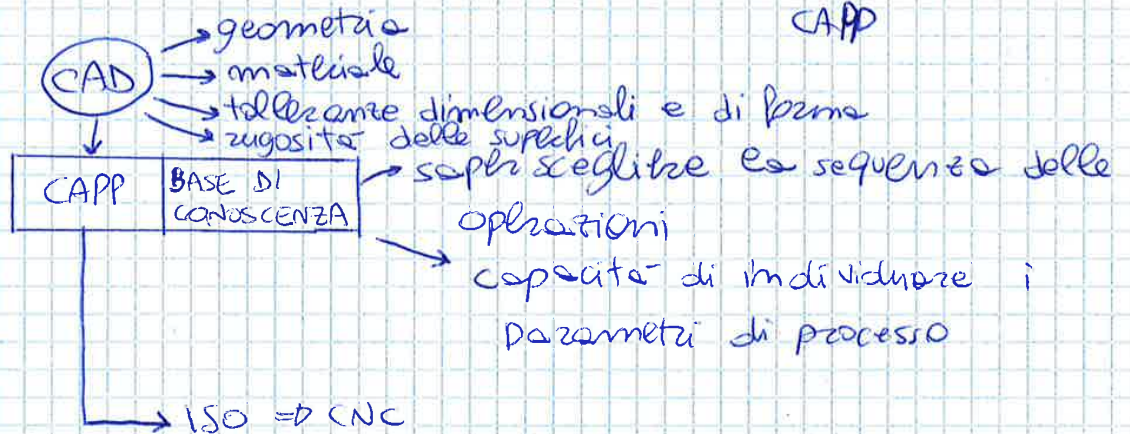 CAPP
geometria
CAD
materiale
tolleranze dimensionali e di forma
rugosità delle superfici
CAPP
BASE DI
CONOSCENZA
saper scegliere la sequenza delle
operazioni
capacità di individuare i
parametri di processo
ISO => CNC